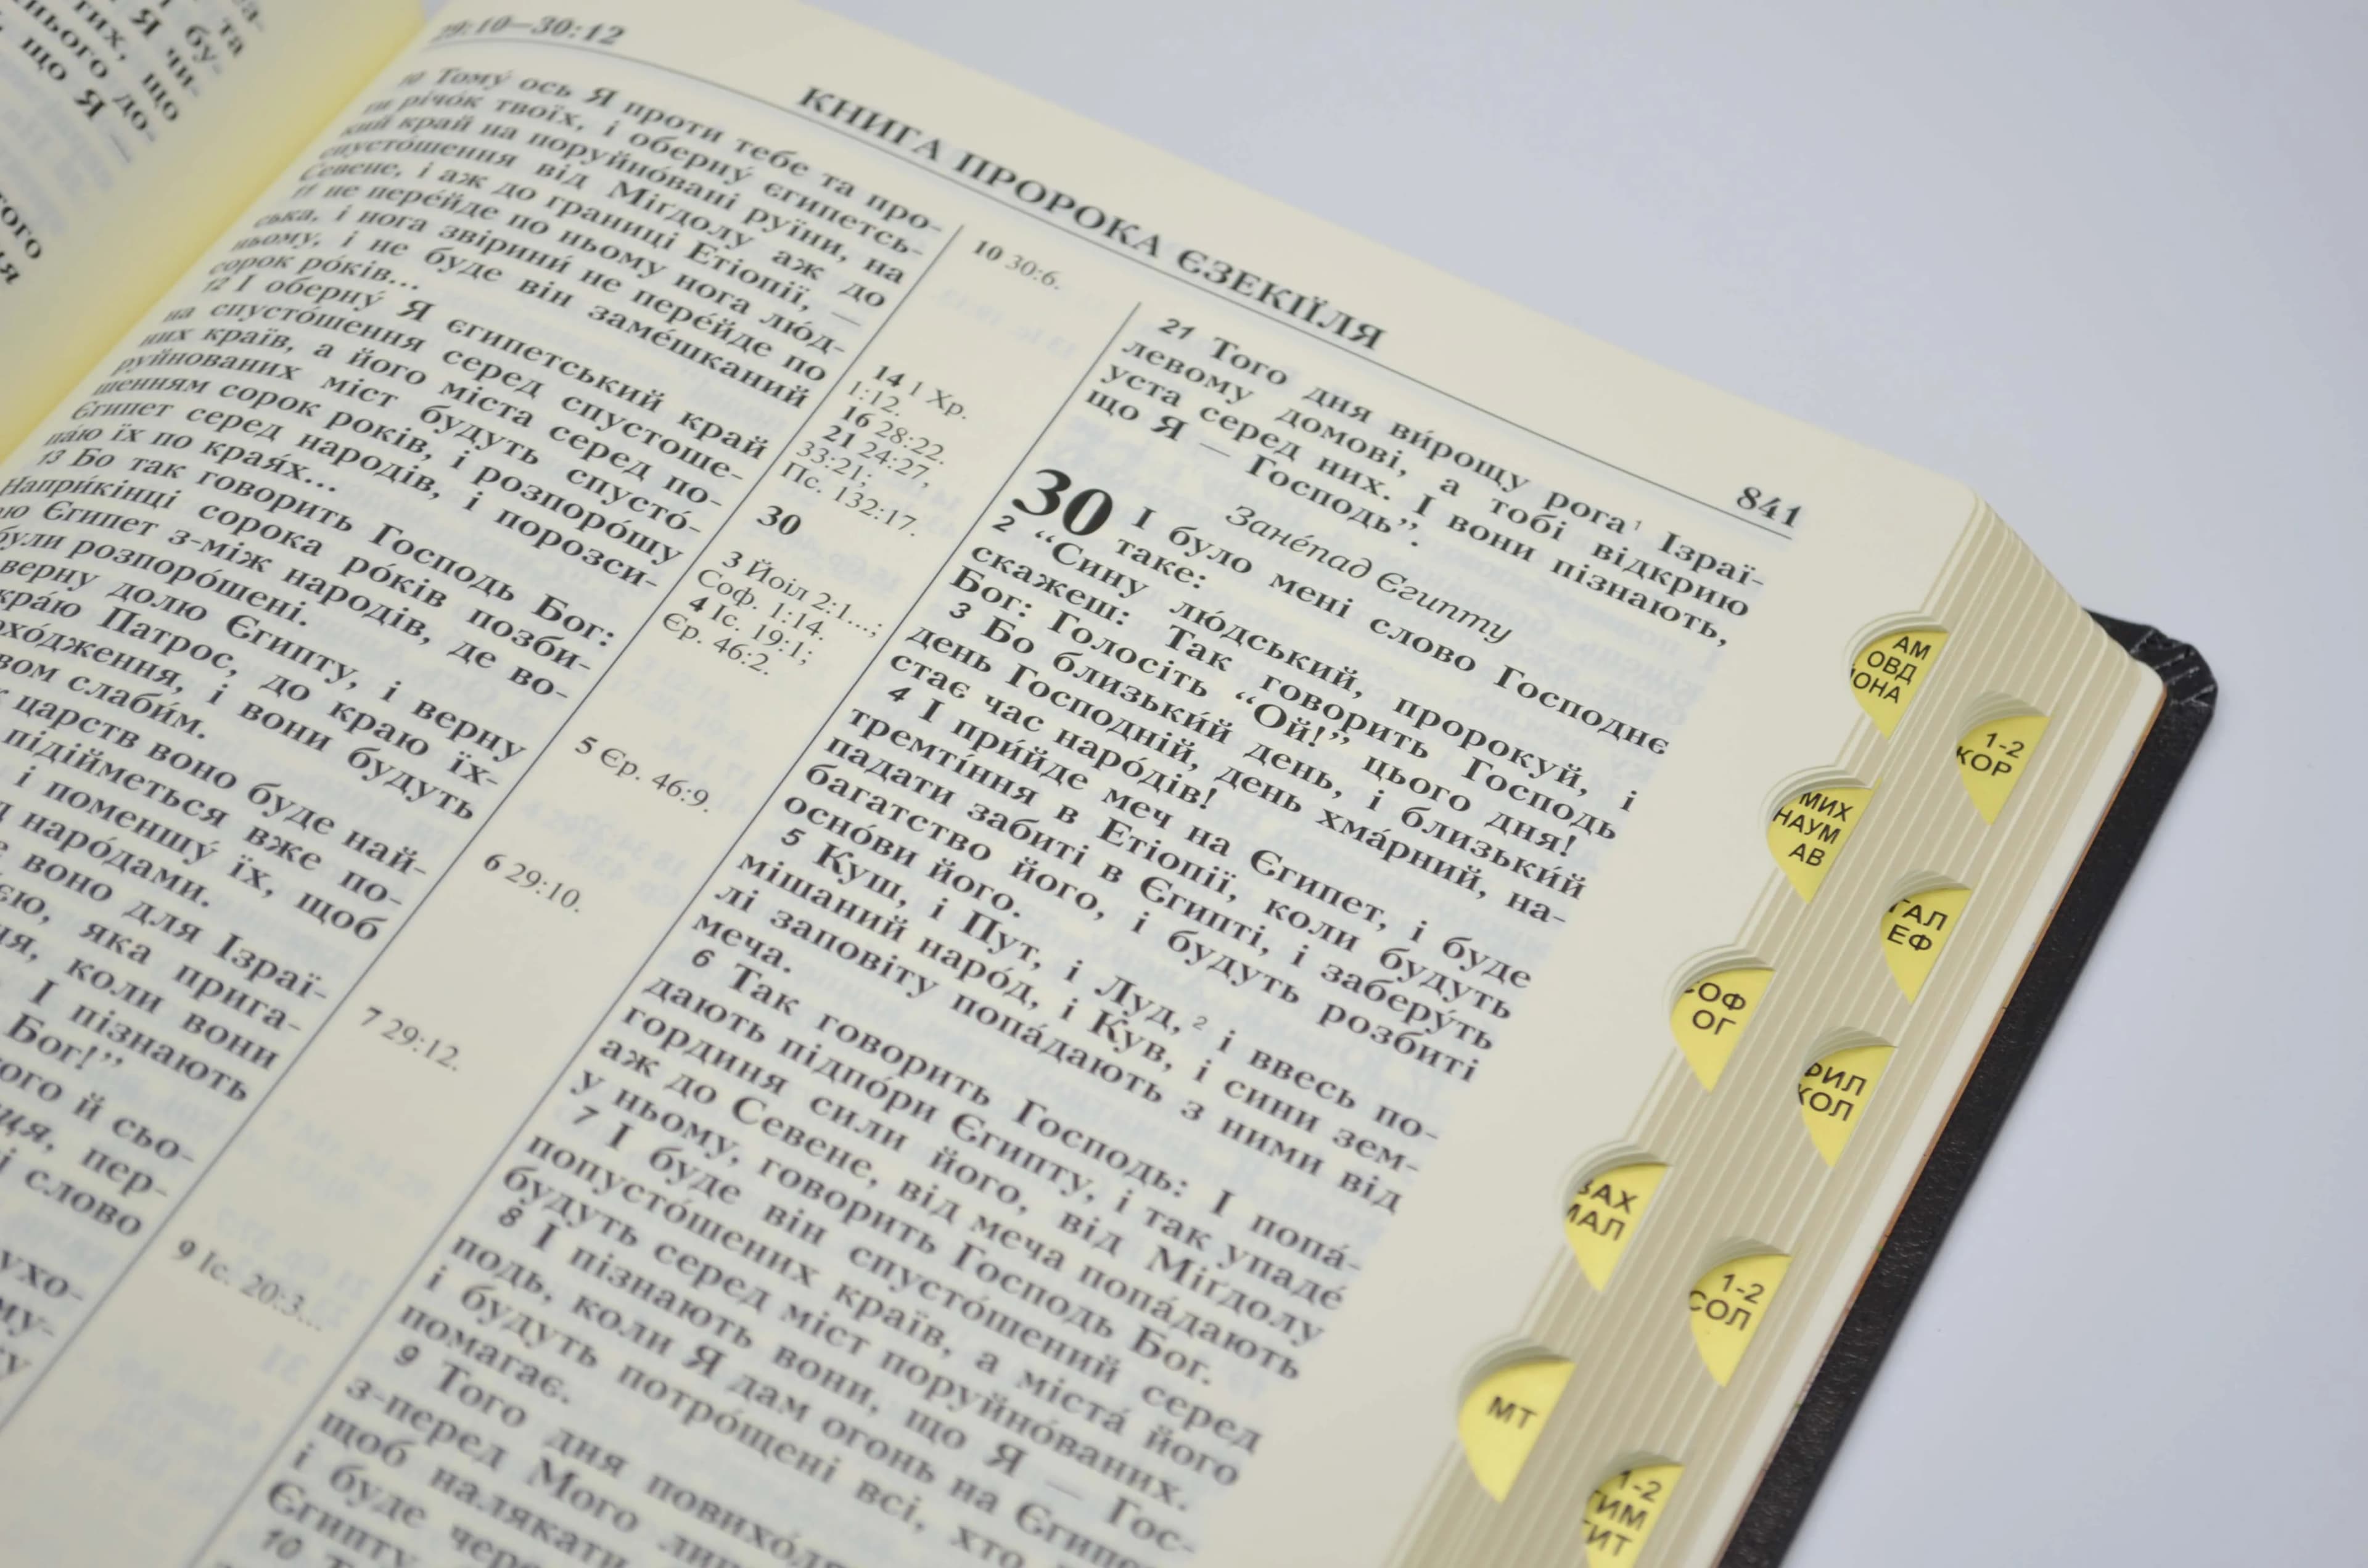 та
бу-
Я чи-
що
до-
що Я —
того
29:10—30:12
КНИГА ПРОРОКА ЄЗЕКІЇЛЯ
841
10 Тому́ ось Я проти тебе та про-
ти річо́к твоїх, і оберну́ єгипетсь-
кий край на поруйно́вані руїни, на
спусто́шення від Міґдолу аж до
Севене, і аж до границі Етіопії, —
11 не пере́йде по ньому нога лю́д-
ська, і нога звірини́ не пере́йде по
ньому, і не буде він заме́шканий
сорок ро́ків...
12 І оберну́ Я єгипетський край
на спусто́шення серед спустоше-
них країв, а його міста серед по-
руйнованих міст будуть спусто́-
шенням сорок років, і розпоро́шу
Єгипет серед народів, і порозси-
па́ю їх по края́х...
13 Бо так говорить Господь Бог:
Напри́кінці сорока ро́ків позби-
ю Єгипет з-між народів, де во-
були розпоро́шені.
верну долю Єгипту, і верну
кра́ю Патрос, до краю їх-
хо́дження, і вони будуть
вом слаби́м.
царств воно буде най-
підійметься вже по-
і поменшу́ їх, щоб
наро́дами.
воно для Ізраї-
єю, яка прига-
ця, коли вони
І пізнають
Бог!”
ого й сьо-
ця, пер-
і слово
ухо-
му-
10 30:6.
14 1 Хр.
1:12.
16 28:22.
21 24:27,
33:21;
Пс. 132:17.
30
3 Йоіл 2:1...;
Соф. 1:14.
4 Іс. 19:1;
Єр. 46:2.
5 Єр. 46:9.
6 29:10.
7 29:12.
9 Іс. 20:3...
21 Того дня ви́рощу рога¹ Ізраї-
левому домові, а тобі відкрию
уста серед них. І вони пізнають,
що Я — Господь”.
Зане́пад Єгипту
30 І було мені слово Господнє
таке:
2 “Сину лю́дський, пророкуй, і
скажеш: Так говорить Господь
Бог: Голосіть “Ой!” цього дня!
3 Бо близьки́й день, і близьки́й
день Господній, день хма́рний, на-
стає час наро́дів!
4 І при́йде меч на Єгипет, і буде
тремті́ння в Етіопії, коли будуть
падати забиті в Єгипті, і заберу́ть
багатство його, і будуть розбиті
осно́ви його.
5 Куш, і Пут, і Луд,² і ввесь по-
мішаний наро́д, і Кув, і сини зем-
лі заповіту попа́дають з ними від
меча.
6 Так говорить Господь: І попа́-
дають підпо́ри Єгипту, і так упаде́
гординя сили його, від Міґдолу
аж до Севене, від меча попа́дають
у ньому, говорить Господь Бог.
7 І буде він спусто́шений серед
попусто́шених країв, а міста́ його
будуть серед міст поруйно́ваних.
8 І пізнають вони, що Я — Гос-
подь, коли Я дам огонь на Єгипе
і будуть потро́щені всі, хто
помагає.
9 Того дня повихо́дя
з-перед Мого
щоб налякати
і буде чере
Єгипту
10
АМ
ОВД
ЙОНА
1-2
КОР
МИХ
НАУМ
АВ
ГАЛ
ЕФ
СОФ
ОГ
ФИЛ
КОЛ
ЗАХ
МАЛ
1-2
СОЛ
МТ
1-2
ТИМ
ТИТ